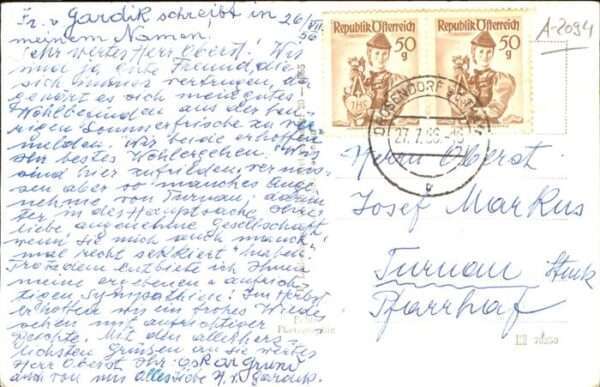 Fr. v. Gardik schreibt in
meinem Namen! 26/VII 56
Sehr werter Herr Oberst! Wir
sind ja gute Freunde, die
sich immer vertrugen, da
gehört es sich mein gutes
Wohlbefinden aus der heu-
rigen Sommerfrische zu ver-
melden. Wir beide erhoffen
Ihr bestes Wohlergehen. Wir
sind hier zufrieden, vermis-
sen aber so manches Ange-
nehme von Turnau, darun-
ter in der Hauptsache, Ihre
liebe, angenehme Gesellschaft
wenn Sie mich auch manch-
mal recht sekkiert haben.
Trotzdem entbiete ich Ihnen
meine ergebenen & aufrich-
tigen Sympathien! Im Herbst
erhoffen wir ein frohes Wieder-
sehen mit aufrichtiger
Mit den allerherz-
lichsten Grüßen an Sie werter
Herr Oberst Ihr Oskar Grund
auch von mir alles Liebe H. v. Gardik.
Republik Österreich
50
g
Republik Österreich
50
g
DROSENDORF
27.7.56
A-2094
Herrn Oberst
Josef Markus
Turnau Stmk
Pfarrhof